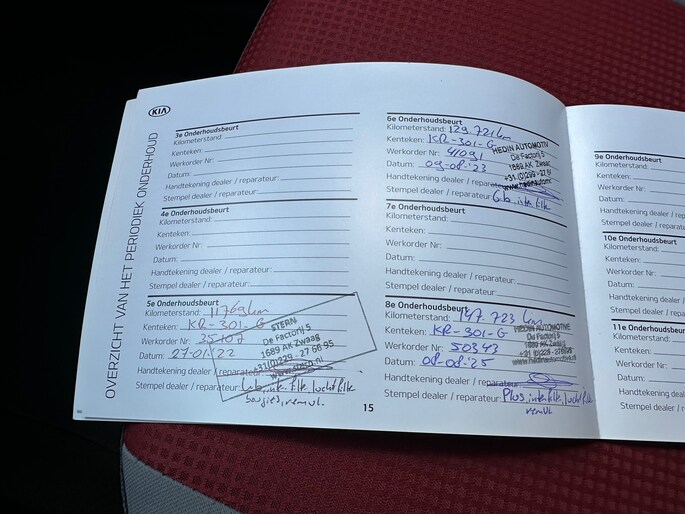 KIA
OVERZICHT VAN HET PERIODIEK ONDERHOUD
3e Onderhoudsbeurt
Kilometerstand:
Kenteken:
Werkorder Nr:
Datum:
Handtekening dealer / reparateur:
Stempel dealer / reparateur:
4e Onderhoudsbeurt
Kilometerstand:
Kenteken:
Werkorder Nr:
Datum:
Handtekening dealer / reparateur:
Stempel dealer / reparateur:
5e Onderhoudsbeurt
Kilometerstand: 11769 km
Kenteken: KR-301-G
Werkorder Nr: 35107
Datum: 27-01-'22
Handtekening dealer / reparateur:
Stempel dealer / reparateur:
STERN
De Factorij 5
1689 AK Zwaag
+31(0)229 - 27 66 95
www.stern.nl
bougies, remvl.
6e Onderhoudsbeurt
Kilometerstand: 129.721 km
Kenteken: KR-301-G
Werkorder Nr: 41091
Datum: 09-08-'23
Handtekening dealer / reparateur:
Stempel dealer / reparateur:
HEDIN AUTOMOTIV
De Factorij 5
1689 AK Zwaag
7e Onderhoudsbeurt
Kilometerstand:
Kenteken:
Werkorder Nr:
Datum:
Handtekening dealer / reparateur:
Stempel dealer / reparateur:
8e Onderhoudsbeurt
Kilometerstand: 147.723 km
Kenteken: KR-301-G
Werkorder Nr: 50343
Datum: 08-08-'25
Handtekening dealer / reparateur:
Stempel dealer / reparateur: Plus, interfilte, luchtfilte
remvl
HEDIN AUTOMOTIVE
De Factorij 5
1689 AK Zwaag
15
9e Onderhoudsbeurt
Kilometerstand:
Kenteken:
Werkorder Nr:
Datum:
Handtekening dealer
Stempel dealer / repa
10e Onderhoudsbeurt
Kilometerstand:
Kenteken:
Werkorder Nr:
Datum:
Handtekening dealer
Stempel dealer / re
11e Onderhoudsbeurt
Kilometerstand:
Kenteken:
Werkorder Nr:
Datum:
Handtekening deale
Stempel dealer /